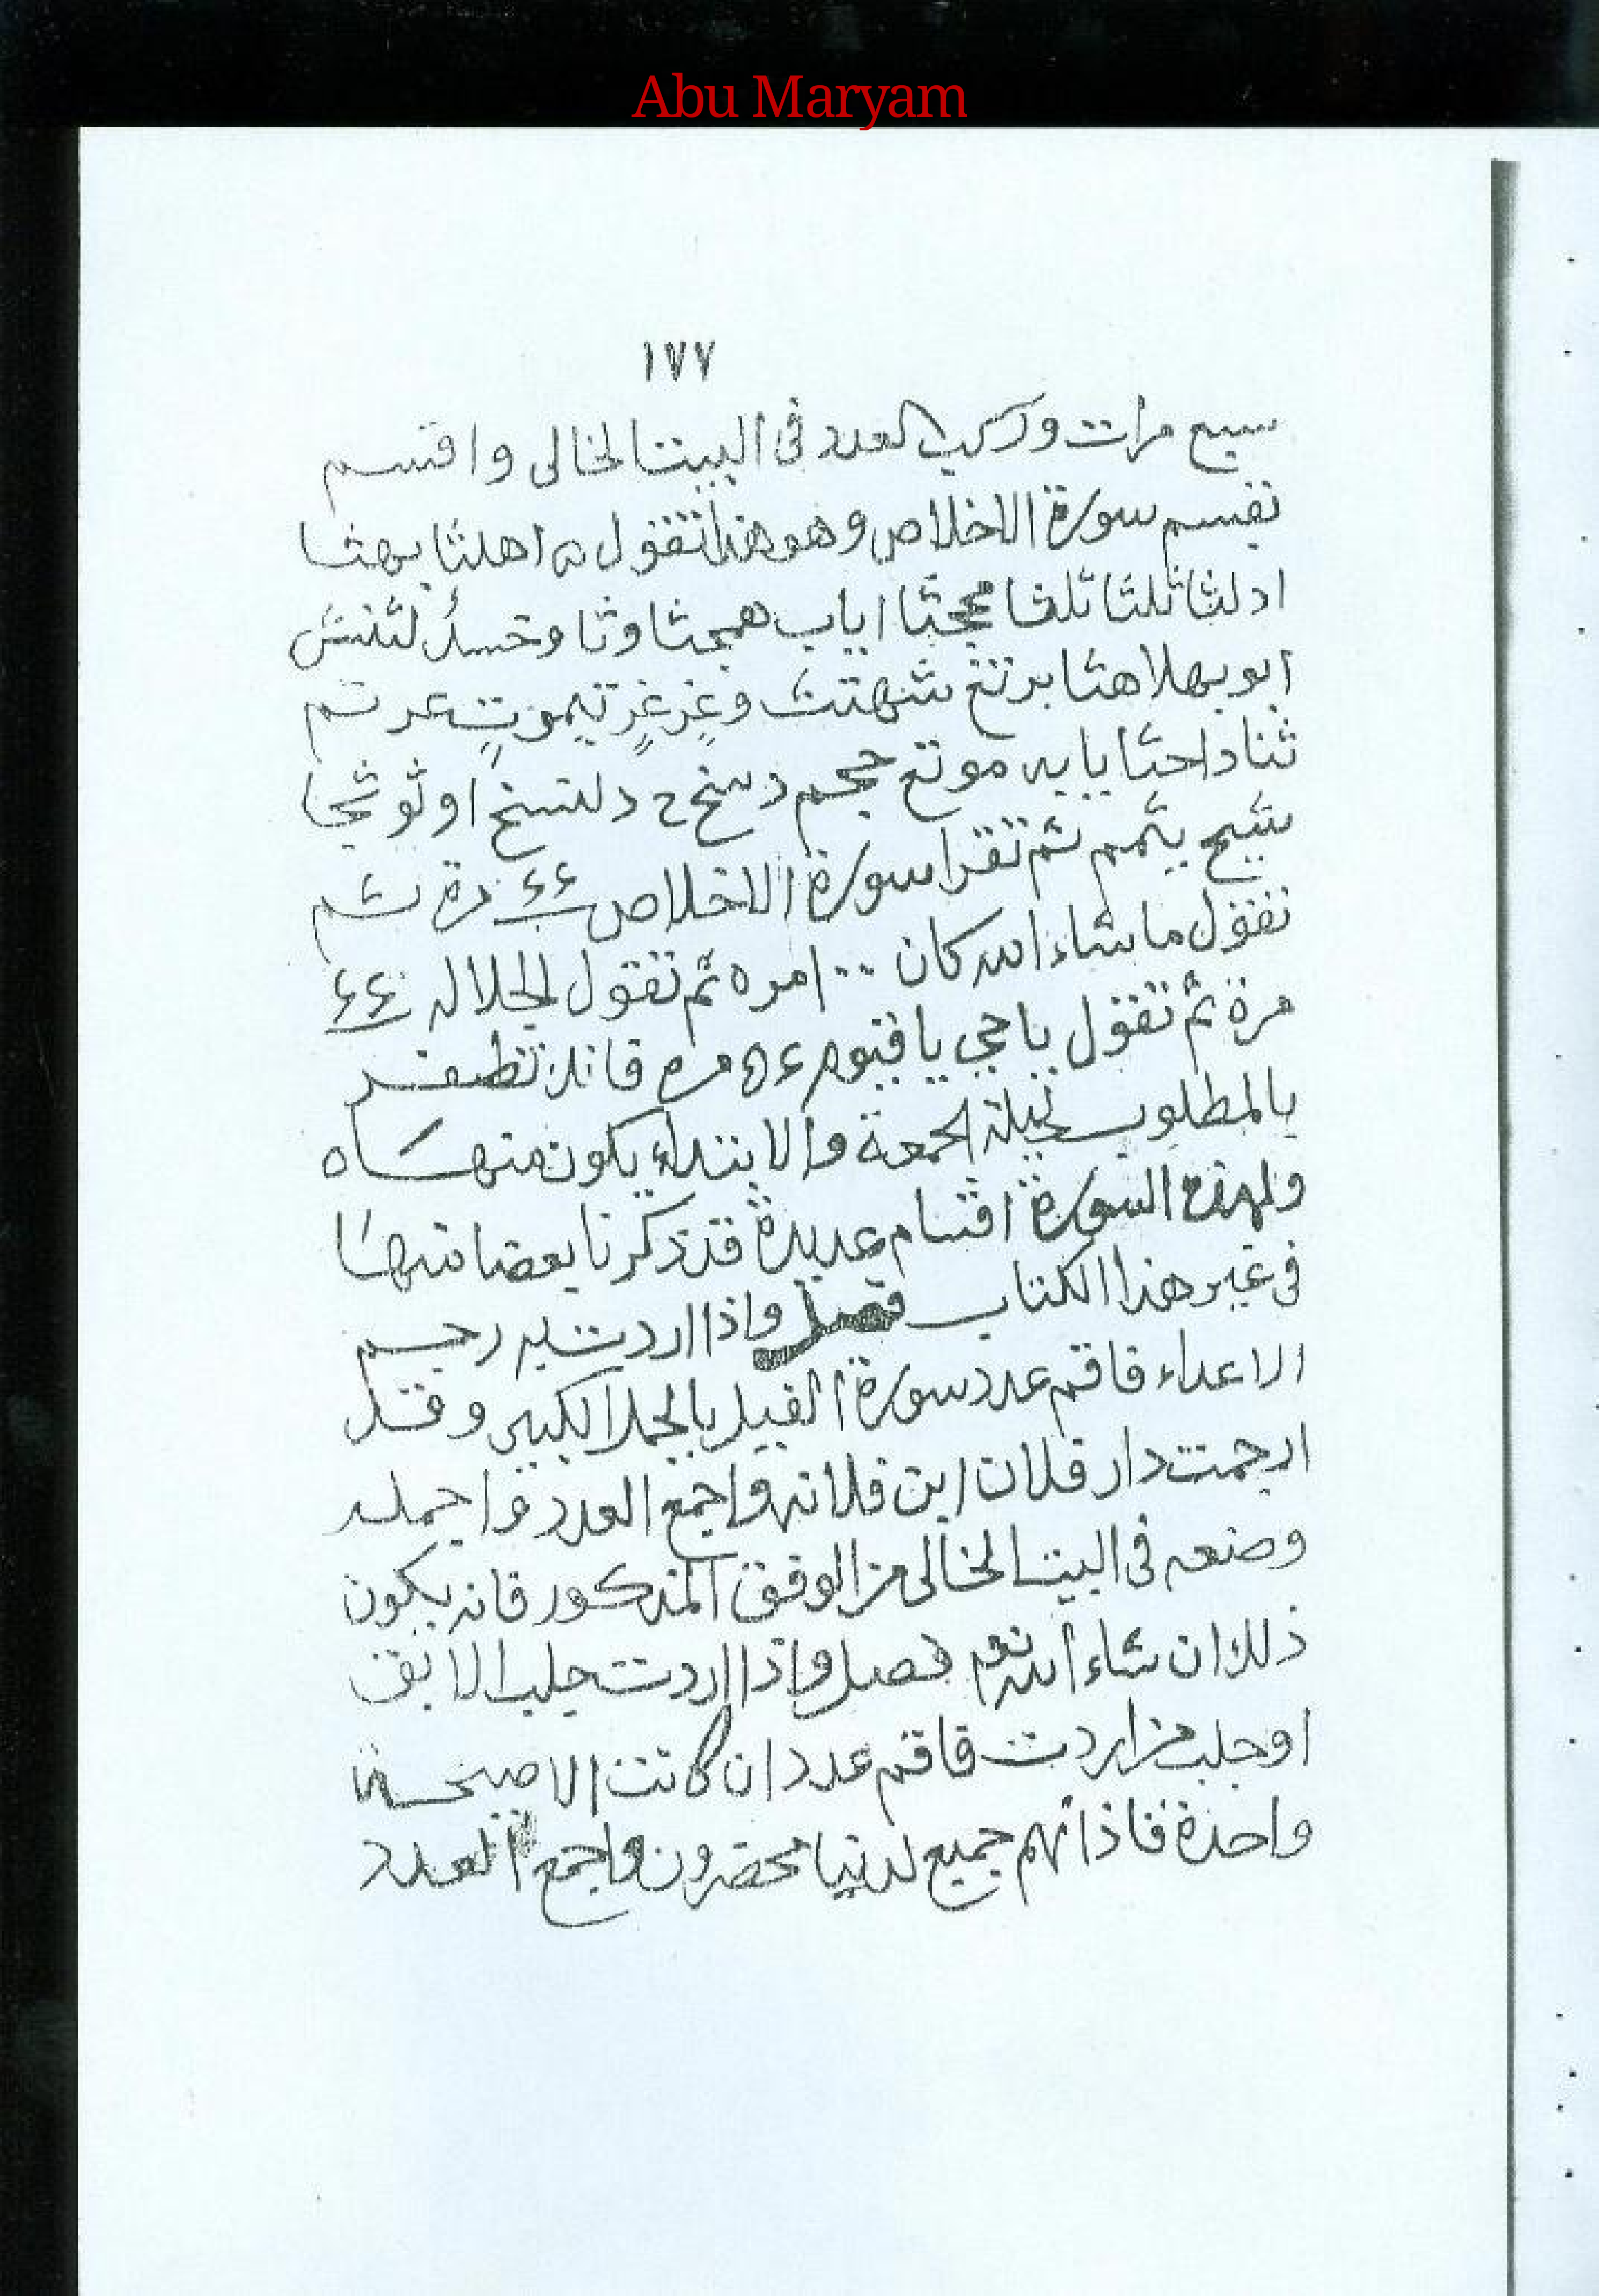 Abu Maryam
١٧٧
سبع مرات وركب العدد فى البيت الخالى واقسم
بقسم سورة الاخلاص وهو هذا تقول اهلثا بهثا
ادلثا ثلثا ثلثا اياب همجثا وثا
ابو بهلا هثا شهتت وغزغز عد تم
ثنا داحثا يا يه موتع ججم
ثم تقرا سورة الاخلاص ٤٤ مرة ثم
تقول ماشاء الله كان ١٠٠ مره ثم تقول الجلاله ٤٤
مرة ثم تقول يا حي يا قيوم مره فانك تظفر
بالمطلوب ليلة الجمعة والابتداء يكون منهاه
ولهذه السورة اقسام عديدة قد ذكرنا بعضا منها
فى غير هذا الكتاب فصل واذا اردت به رجم
الاعداء فاقم عدد سورة الفيل بالجمل الكبير وقل
ارجمت دار فلان ابن فلانه واجمع العدد واجمله
وضعه فى البيت الخالى من الوفق المذكور فانه يكون
ذلك ان شاء الله تعم فصل واذا اردت جلب الابق
اوجلب من اردت فاقم عدد ان كانت الا صيحة
واحدة فاذا هم جميع لدينا محضرون واجمع العدد